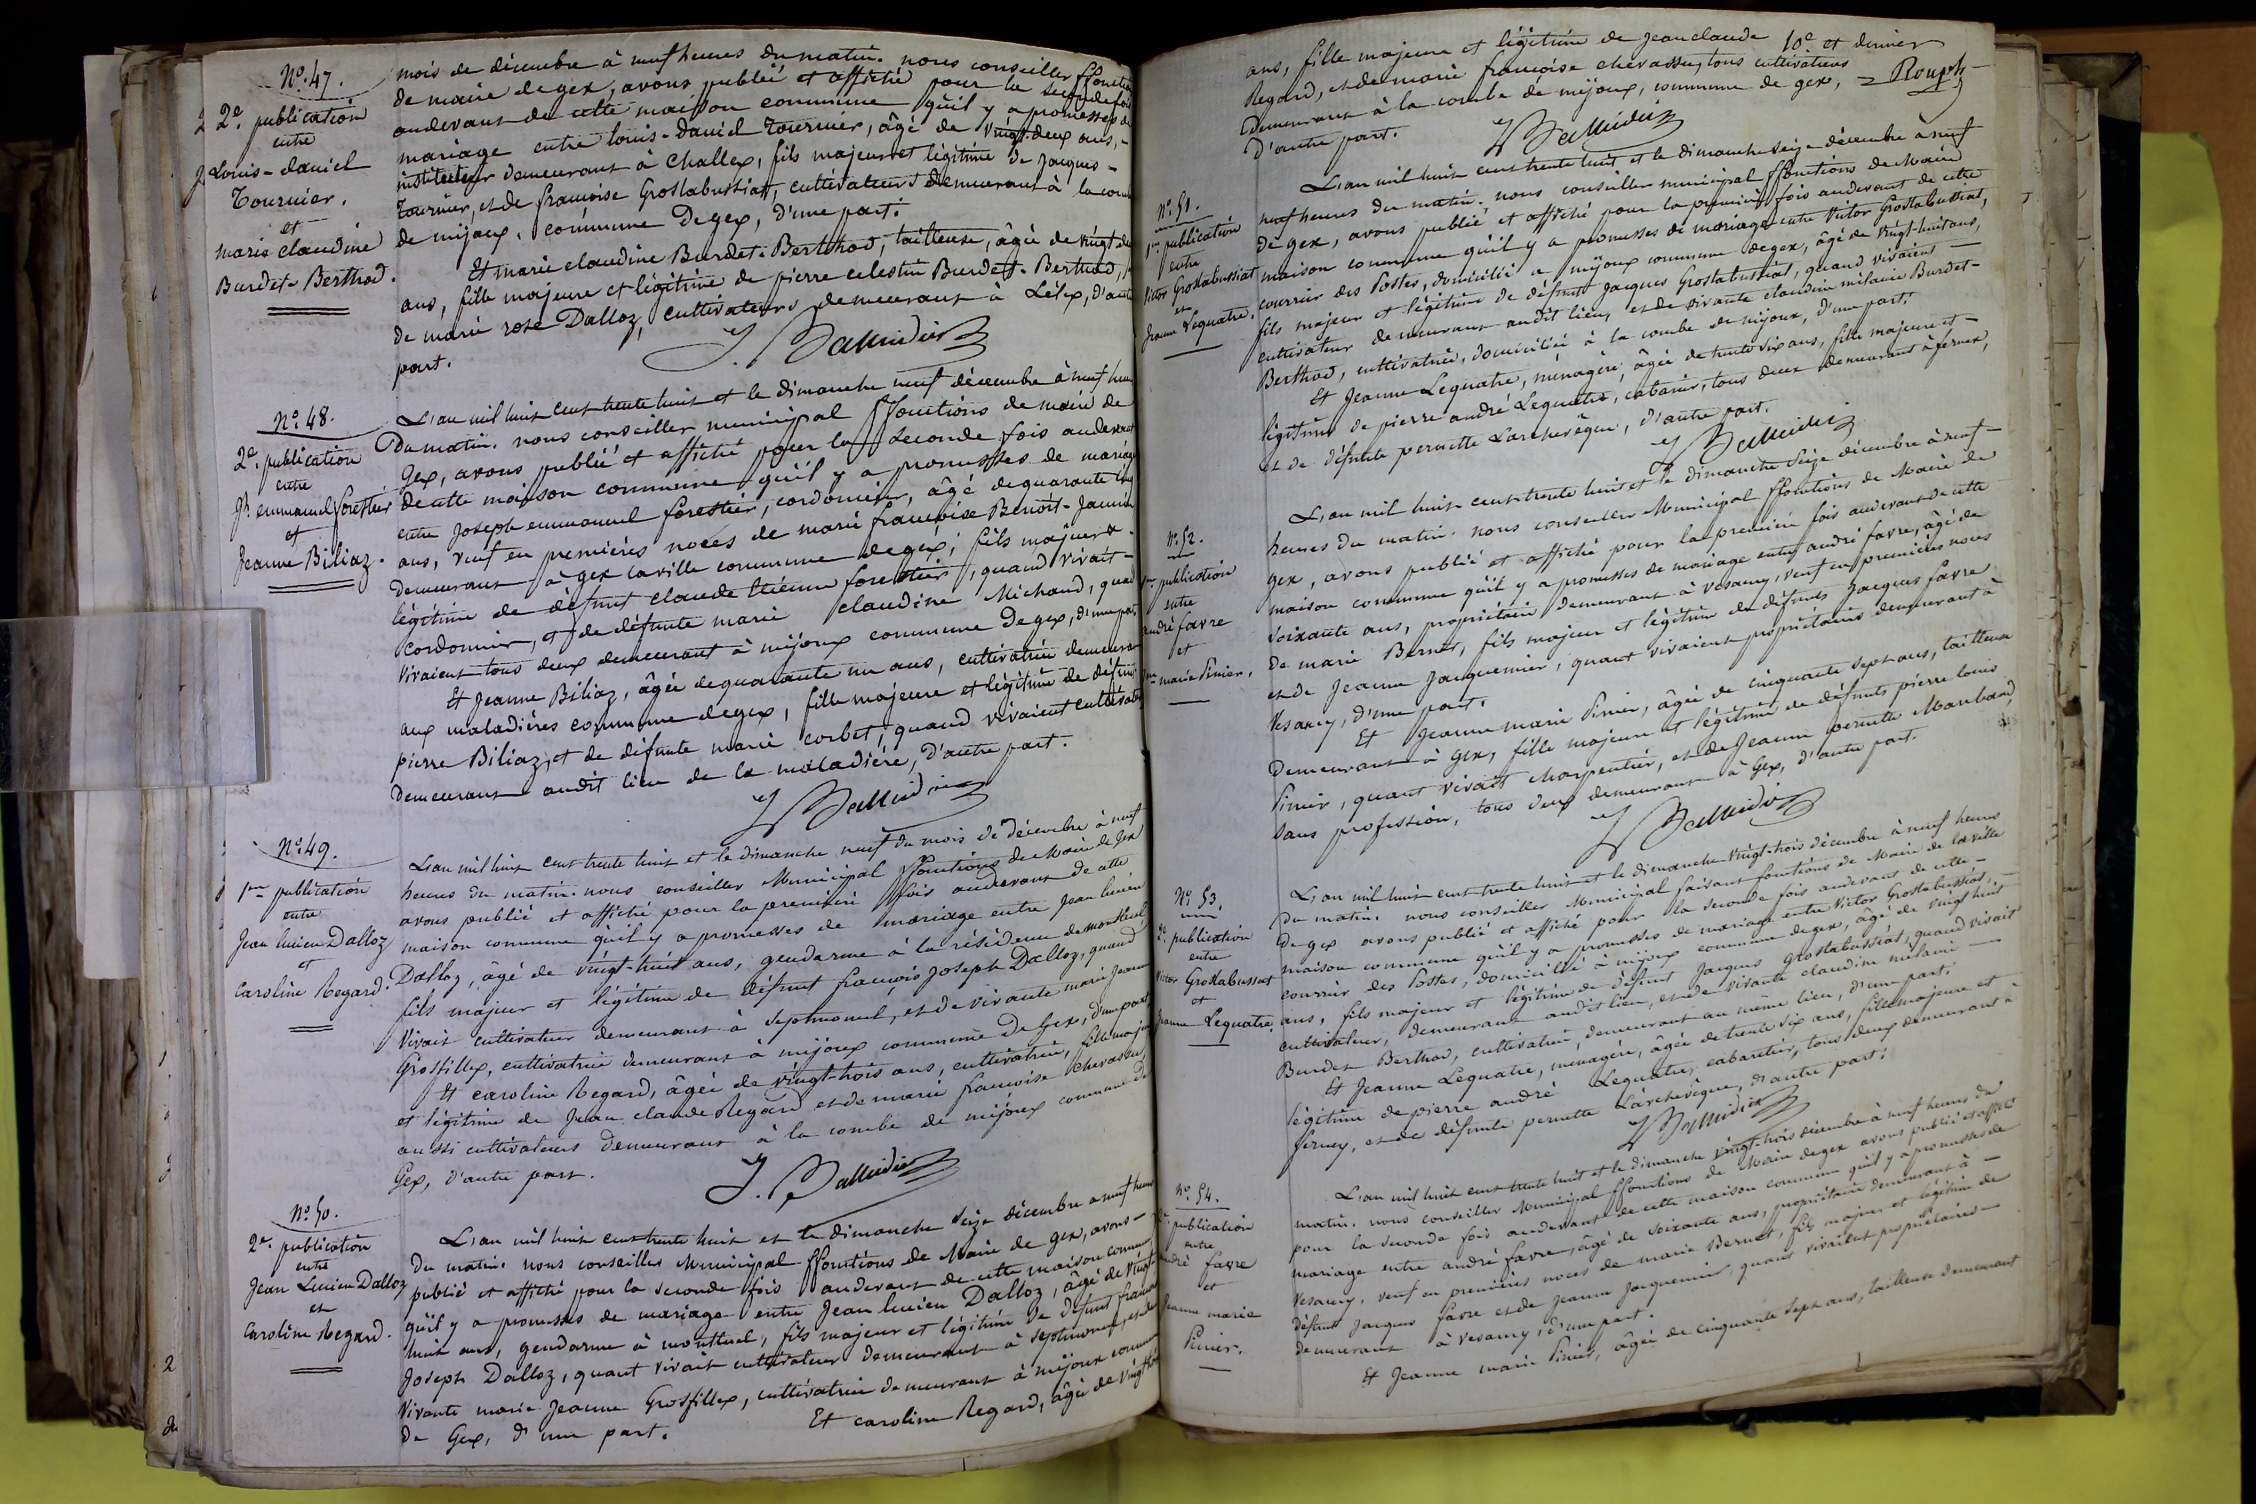 N.º 47.
2.e publication
entre
Louis-daniel
Tournier.
et
marie claudine
Burdet-Berthod.
mois de décembre à neuf heures du matin. nous conseiller ffonctions
de maire de gex, avons publié et affiché pour la seconde fois
audevant de cette maison commune qu'il y a promesses de
mariage entre louis-daniel tournier, âgé de vingt-deux ans,
instituteur demeurant à Challex, fils majeur et légitime de jacques-
tournier, et de françoise Grostabussiat, cultivateurs demeurant à la combe
de mijoux, commune de gex, d'une part.
Et marie claudine Burdet-Berthod, tailleuse, âgée de vingt
ans, fille majeure et légitime de pierre celestin Burdet-Berthod,
de marie rose Dalloz, cultivateurs demeurant à Lélex, d'autre
part.
N.º 48.
2.e publication
entre
Jh. emmanuel forestier
et
Jeanne Biliaz.
L'an mil huit cent trente huit et le dimanche neuf décembre à neuf heures
Du matin. nous conseiller municipal ffonctions de maire de
Gex, avons publié et affiché pour la seconde fois audevant
de cette maison commune qu'il y a promesses de mariage
entre Joseph emmanuel forestier, cordonnier, âgé de quarante cinq
ans, veuf en premières noces de marie françoise Benoit-Jannin
demeurant à gex la ville commune de gex; fils majeur et
légitime de défunt claude étienne forestier, quand vivait
cordonnier, et de défunte marie claudine Michaud, quand
vivaient tous deux demeurant à mijoux commune de gex, d'une part.
Et Jeanne Biliaz, âgée de quarante un ans, cultivatrice demeurant
aux maladières commune de gex, fille majeure et légitime de défunt
pierre Biliaz, et de défunte marie corbet, quand vivaient cultivateurs
demeurant audit lieu de la maladière, d'autre part.
N.º 49.
1.re publication
entre
Jean lucien Dalloz
et
Caroline Regard.
L'an mil huit cent trente huit et le dimanche neuf du mois de décembre à neuf
heures du matin. nous conseiller Municipal ffonctions de Maire de Gex
avons publié et affiché pour la première fois audevant de cette
maison commune qu'il y a promesses de mariage entre Jean lucien
Dalloz, âgé de vingt-huit ans, gendarme à la résidence de montluel
fils majeur et légitime de défunt françois Joseph Dalloz, quand
vivait cultivateur demeurant à Septmoncel, et de vivante marie Jeanne
Grosfillex, cultivatrice demeurant à mijoux commune de Gex, d'une part.
Et caroline Regard, âgée de vingt-trois ans, cultivatrice, fille majeure
et légitime de Jean claude Regard et de marie françoise chevassu,
aussi cultivateurs demeurant à la combe de mijoux commune de
Gex, d'autre part.
N.º 50.
2.e publication
entre
Jean Lucien Dalloz
et
Caroline Regard.
L'an mil huit cent trente huit et le dimanche seize décembre à neuf heures
du matin. nous conseiller Municipal ffonctions de Maire de gex, avons-
publié et affiché pour la seconde fois audevant de cette maison commune
qu'il y a promesses de mariage entre Jean lucien Dalloz, âgé de vingt-
huit ans, gendarme à montluel, fils majeur et légitime de défunt françois
Joseph Dalloz, quant vivait cultivateur demeurant à septmoncel, et de
vivante marie Jeanne Grosfillex, cultivatrice demeurant à mijoux commune
de Gex, d'une part. Et caroline Regard, âgée de vingt trois
10e et dernier
ans, fille majeure et légitime de Jean claude
Regard, et de marie françoise chevassu, tous cultivateurs
Demeurant à la combe de mijoux, commune de gex,
D'autre part.
N.º 51.
1.re publication
entre
Victor Grostabussiat
et
Jeanne Lequatre.
L'an mil huit cent trente huit et le dimanche seize décembre à neuf
neuf heures du matin. nous conseiller municipal ffonctions de Maire
de gex, avons publié et affiché pour la première fois audevant de cette
maison commune qu'il y a promesses de mariage entre Victor Grostabussiat,
courrier des Postes, domicilié à mijoux commune de gex, âgé de vingt-huit ans,
fils majeur et légitime de défunt Jacques Grostabussiat, quand vivaient
cultivateur demeurant audit lieu, et de vivante claudine mélanie Burdet-
Berthod, cultivatrice, domiciliée à la combe de mijoux, d'une part.
Et Jeanne Lequatre, ménagère, âgée de trente six ans, fille majeure et
légitime de pierre andré Lequatre, cabaretier, tous deux demeurant à fernex,
et de défunte pernette Larchevêque, d'autre part.
N.º 52.
publication
entre
andré favre
et
marie Pinier.
L'an mil huit cent trente huit et le dimanche seize décembre à neuf
heures du matin. nous conseiller Municipal ffonctions de Maire de
gex, avons publié et affiché pour la première fois audevant de cette
maison commune qu'il y a promesses de mariage entre andré favre, âgé de
soixante ans, propriétaire demeurant à vesancy, veuf en premières noces
de marie Bernet, fils majeur et légitime de défunts Jacques favre
et de Jeanne Jacquemier, quant vivaient propriétaires demeurant à
Vesancy, d'une part.
Et Jeanne marie Pinier, âgée de cinquante sept ans, tailleuse
Demeurant à gex, fille majeure et légitime de défunts pierre louis
Pinier, quant vivait charpentier, et de Jeanne pernette
sans profession, tous deux demeurant à Gex, d'autre part.
N.º 53.
2.e publication
entre
Victor Grostabussiat
et
Jeanne Lequatre.
L'an mil huit cent trente huit et le dimanche vingt-trois décembre à neuf heures
du matin. nous conseiller Municipal faisant fonctions de Maire de la ville
de gex avons publié et affiché pour la seconde fois audevant de cette
maison commune qu'il y a promesses de mariage entre Victor Grostabussiat,
courrier des Postes, domicilié à mijoux commune de gex, âgé de vingt huit
ans, fils majeur et légitime de défunt Jacques Grostabussiat, quand vivait
cultivateur, demeurant audit lieu, et de vivante claudine mélanie
Burdet Berthod, cultivatrice, demeurant au même lieu, d'une part.
Et Jeanne Lequatre, ménagère, âgée de trente six ans, fille majeure et
légitime de pierre andré Lequatre, cabaretier, tous deux demeurant à
fernex, et de défunte pernette Larchevêque, d'autre part.
N.º 54.
publication
entre
andré favre
et
Jeanne marie
Pinier.
L'an mil huit cent trente huit et le dimanche vingt-trois décembre à neuf heures du
matin. nous conseiller Municipal ffonctions de Maire de gex avons publié et affiché
pour la seconde fois audevant de cette maison commune qu'il y a promesses de
mariage entre andré favre, âgé de soixante ans, propriétaire demeurant à
Vesancy, veuf en premières noces de marie Bernet, fils majeur et légitime de
défunt Jacques favre et de Jeanne Jacquemier, quant vivaient propriétaires
demeurant à vesancy, d'une part.
Et Jeanne marie Pinier, âgée de cinquante sept ans, tailleuse demeurant